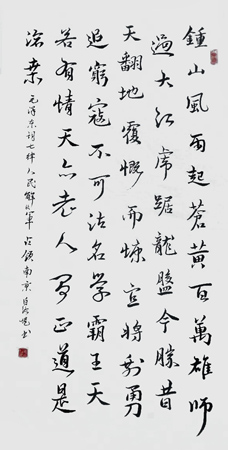 鍾山風雨起蒼黃百萬雄師
過大江虎踞龍盤今勝昔
天翻地覆慨而慷宜將剩勇
追窮寇不可沽名學霸王天
若有情天亦老人間正道是
滄桑
毛澤東詞七律人民解放軍占領南京 書